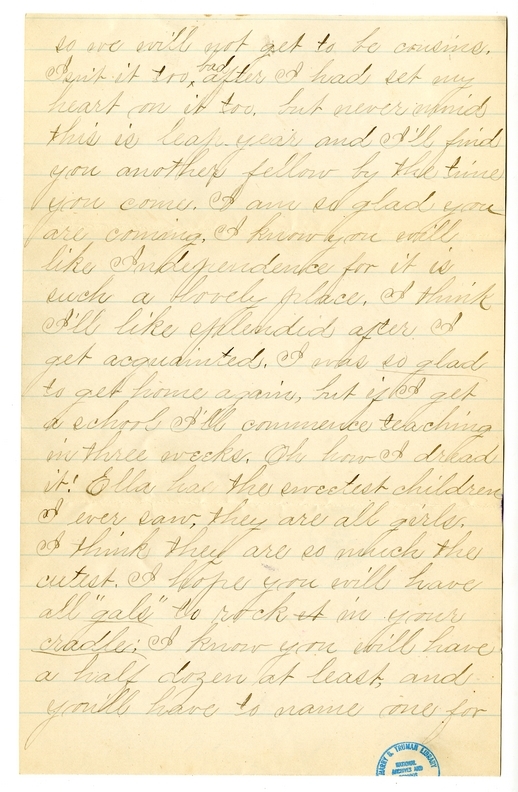 so we will not get to be cousins.
Isn't it too bad after I had set my
heart on it too, but never mind
this is leap year and I'll find
you another fellow by the time
you come. I am so glad you
are coming. I know you will
like Independence for it is
such a lovely place. I think
I'll like splendid after I
get acquainted. I was so glad
to get home again, but if I get
a school I'll commence teaching
in three weeks. Oh how I dread
it! Ella has the sweetest children
I ever saw, they are all girls.
I think they are so much the
cutest. I hope you will have
all "gals" to rock in your
cradle; I know you will have
a half dozen at least, and
you'll have to name one for
HARRY S. TRUMAN LIBRARY
NATIONAL
ARCHIVES AND